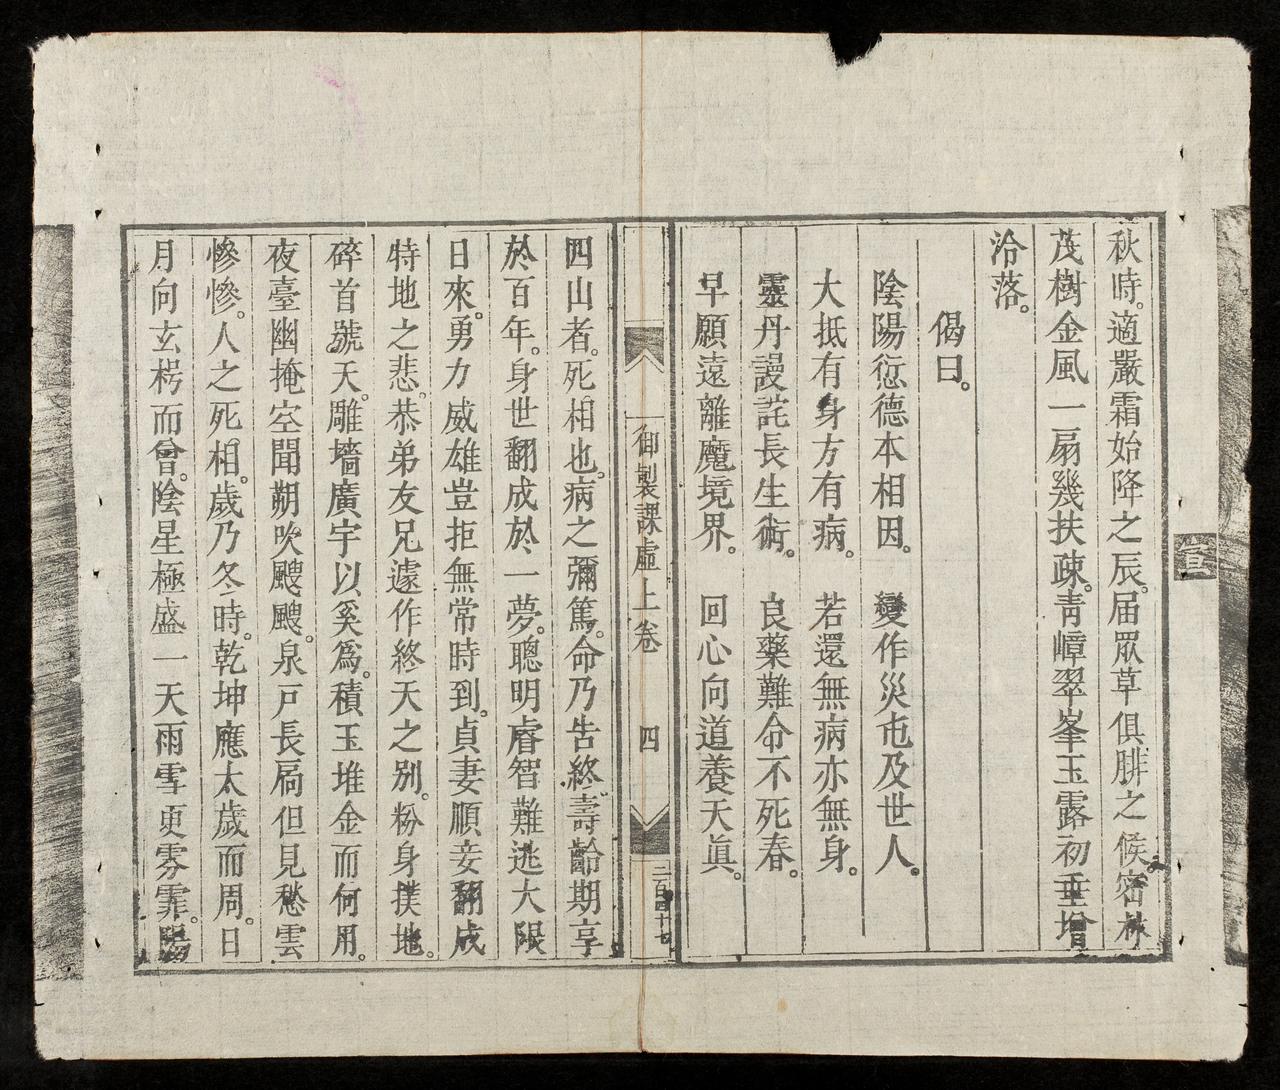 秋時。適嚴霜始降之辰。届眾草俱腓之候。密林
茂樹金風一扇幾扶疎。青嶂翠峯玉露初垂增
冾落。
偈曰。
陰陽愆德本相因。 變作災屯及世人。
大抵有身方有病。 若還無病亦無身。
靈丹謾詫長生術。 良藥難令不死春。
早願遠離魔境界。 回心向道養天眞。
御製課虛上卷 四
二百四十七
四山者。死相也。病之彌篤。命乃告終。壽齡期享
於百年。身世翻成於一夢。聰明睿智難逃大限
日來。勇力威雄豈拒無常時到。貞妻順妾翻成
特地之悲。恭弟友兄遽作終天之别。粉身撲地。
碎首號天。雕墻廣宇以奚爲。積玉堆金而何用。
夜臺幽掩空聞朔吹颼颼。泉戸長扃但見愁雲
慘慘。人之死相。歲乃冬時。乾坤應太歲而周。日
月向玄枵而會。陰星極盛一天雨雪更雰霏。陽